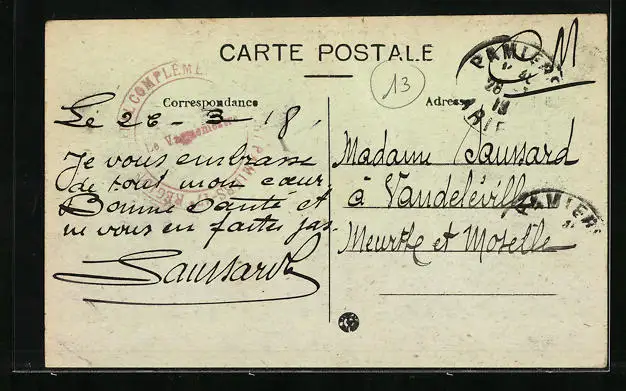 CARTE POSTALE
FM
13
Correspondance
Adresse
PAMIERS
ARIE
HÔPITAL COMPLÉMEN
Le Vaguemestre
Le 26 - 3 - 18.
Je vous embrasse
de tout mon cœur
Bonne Santé et
ne vous en faites pas.
Saussard
Madame Saussard
à Vandeléville
Meurthe et Moselle
PAMIERS